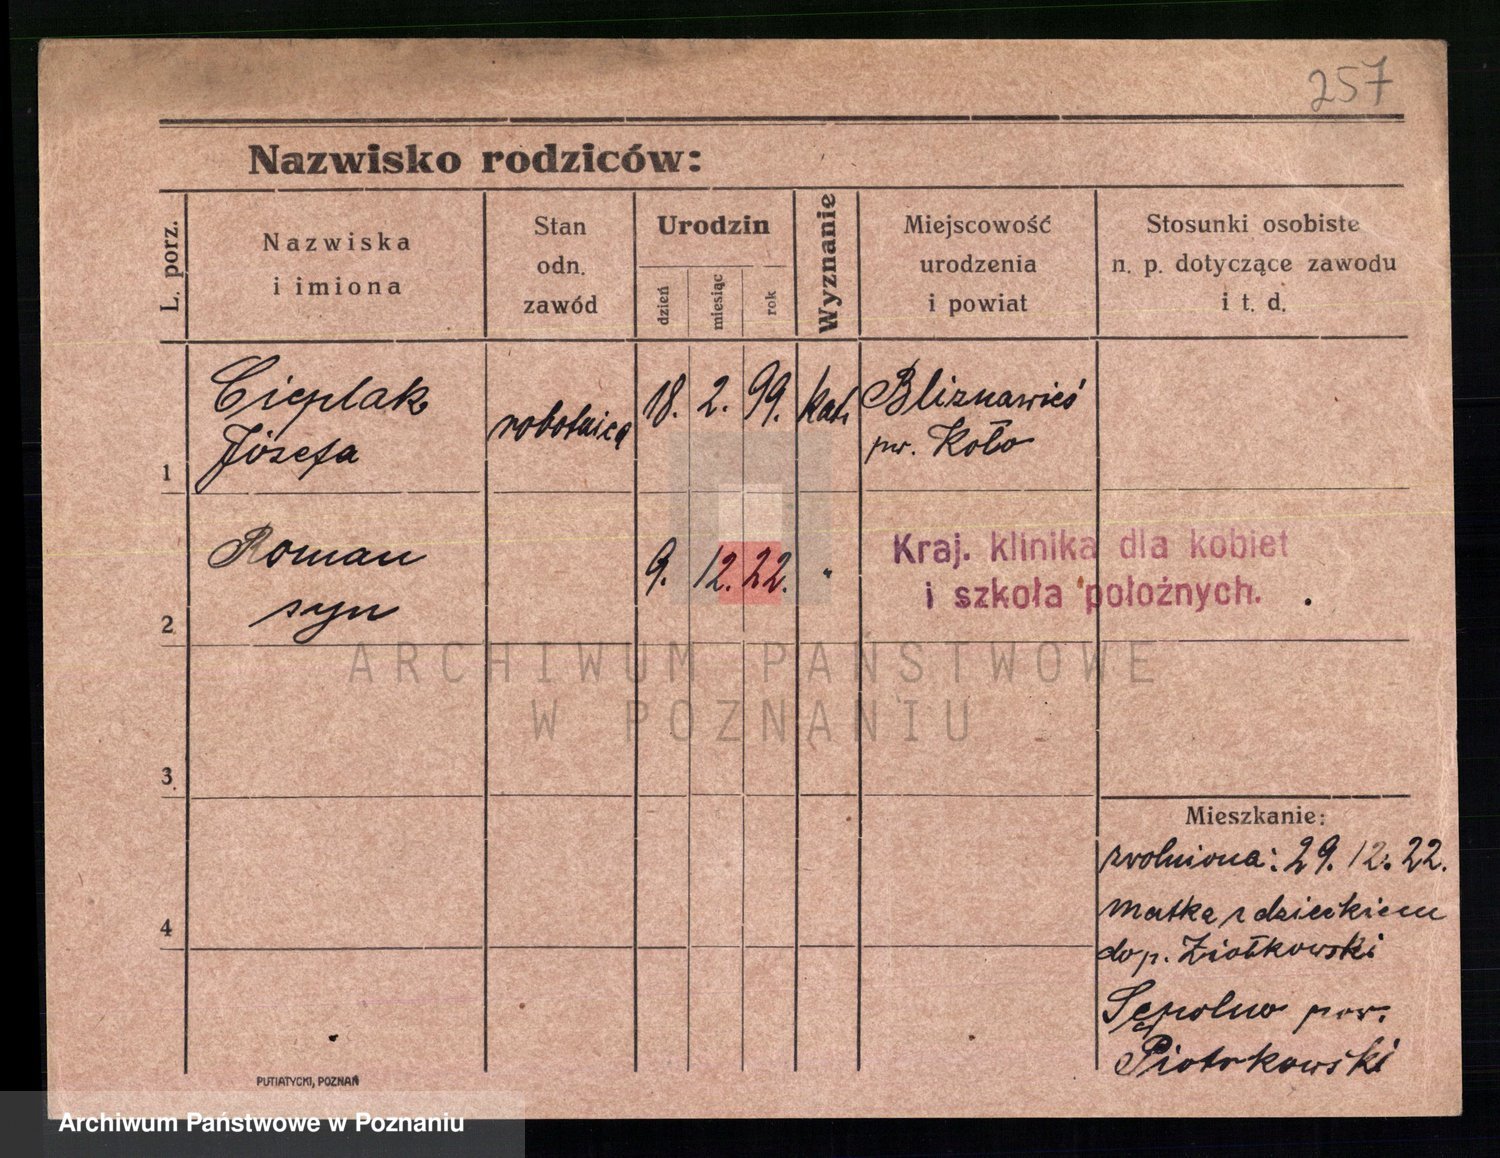 257
Nazwisko rodziców:
L. porz.
Nazwiska
i imiona
Stan
odn.
zawód
Urodzin
dzień
miesiąc
rok
Wyznanie
Miejscowość
urodzenia
i powiat
Stosunki osobiste
n. p. dotyczące zawodu
i t. d.
1
Cieplak
Józefa
robotnica
18. 2. 99.
kat.
Bliznawieś
pw. Koło
2
Roman
syn
9. 12. 22. "
Kraj. klinika dla kobiet
i szkoła położnych.
ARCHIWUM PAŃSTWOWE
W POZNANIU
3
4
Mieszkanie:
zwolniona: 29. 12. 22.
matka z dzieckiem
do p. Ziołkowski
Sępolno pow.
Piotrkowski
PUTIATYCKI, POZNAŃ
Archiwum Państwowe w Poznaniu